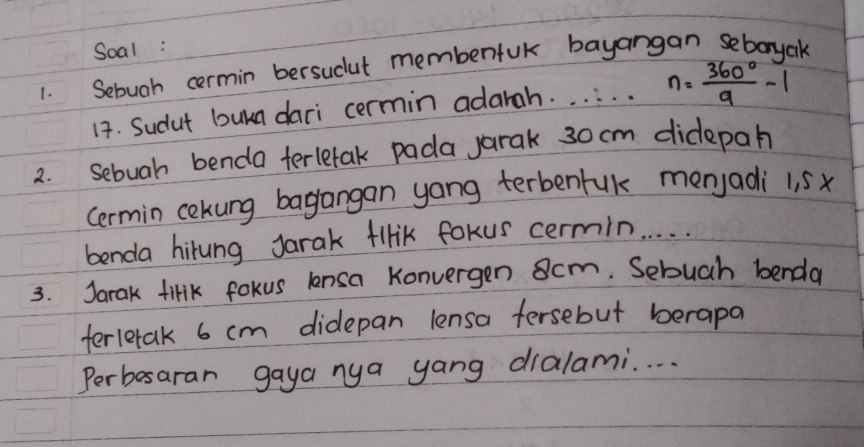 Soal :
1. Sebuah cermin bersudut membentuk bayangan sebanyak
17. Sudut buka dari cermin adarah....... n = 360°/a - 1
2. Sebuah benda terletak pada jarak 30 cm didepan
Cermin cekung bayangan yang terbentuk menjadi 1,5 x
benda hitung Jarak titik fokus cermin.....
3. Jarak titik fokus lensa Konvergen 8cm. Sebuah benda
terletak 6 cm didepan lensa tersebut berapa
Perbesaran gaya nya yang dialami....